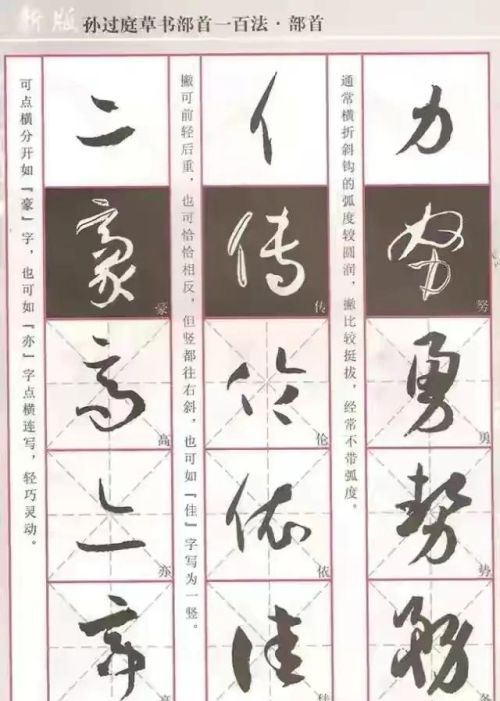 新版 孙过庭草书部首一百法·部首
通常横折斜钩的弧度较圆润，撇比较挺拔，经常不带弧度。
力
努
勇
势
务
撇可前轻后重，也可恰恰相反，但竖都往右斜，也可如『佳』字写为一竖。
亻
传
伦
依
佳
可点横分开如『豪』字，也可如『亦』字点横连写，轻巧灵动。
亠
豪
高
亦